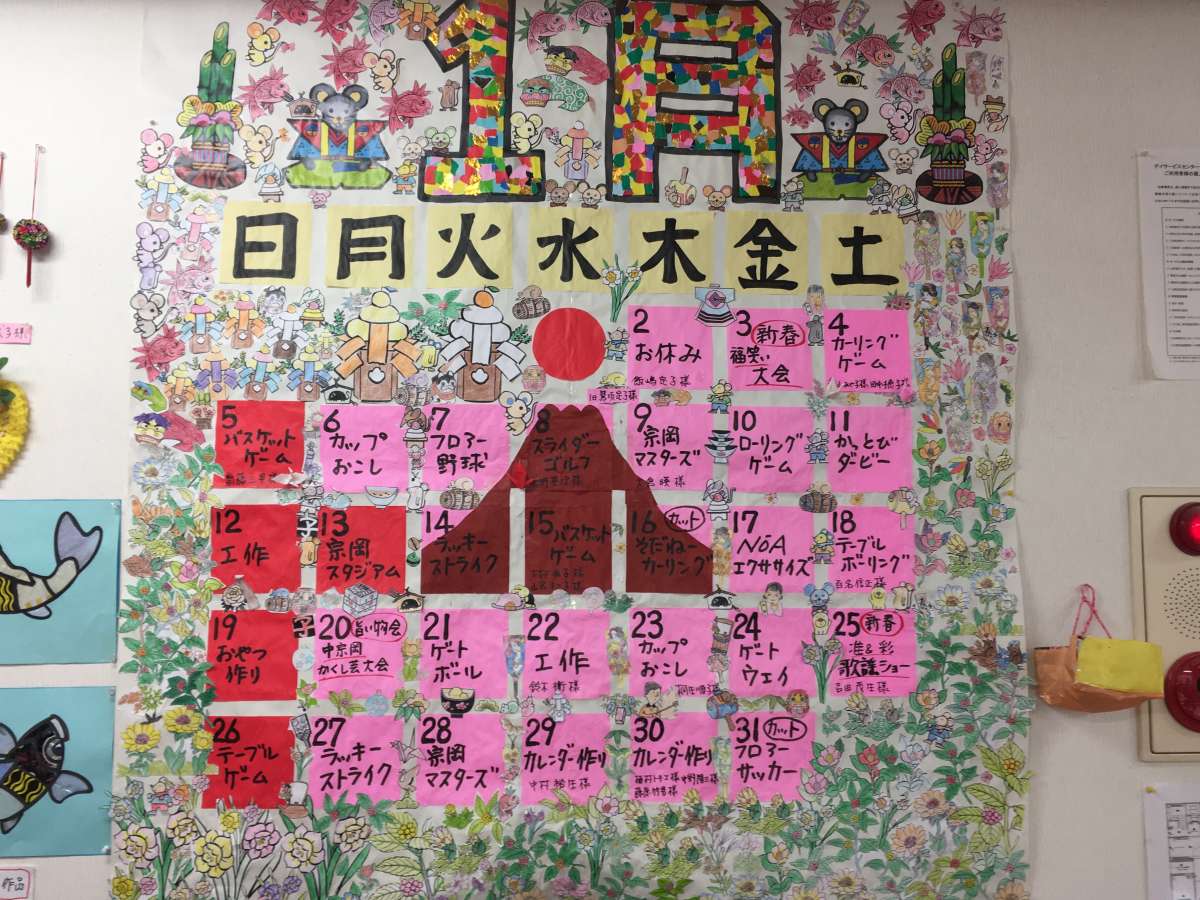 1月
日 月 火 水 木 金 土
2
お休み
3 新春
福笑い
大会
4
カーリング
ゲーム
5
バスケット
ゲーム
6
カップ
おこし
7
フロアー
野球
8
スライダー
ゴルフ
9
宗岡
マスターズ
10
ローリング
ゲーム
11
かっとび
ダービー
12
工作
13
宗岡
スタジアム
14
ラッキー
ストライク
15
バスケット
ゲーム
16 カット
そだねー
カーリング
17
NōA
エクササイズ
18
テーブル
ボーリング
19
おやつ
作り
20 旨い物会
中宗岡
かくし芸大会
21
ゲート
ボール
22
工作
23
カップ
おこし
24
ゲート
ウェイ
25 新春
准&彩
歌謡ショー
26
テーブル
ゲーム
27
ラッキー
ストライク
28
宗岡
マスターズ
29
カレンダー作り
30
カレンダー作り
31 カット
フロアー
サッカー